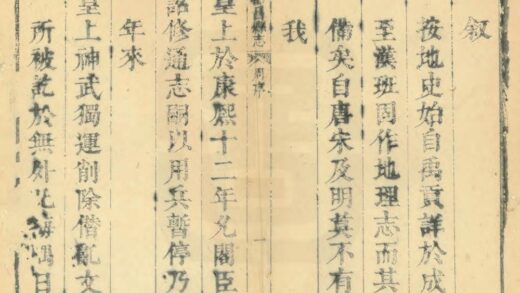 叙
按地史始自禹貢詳於成
至漢班固作地理志而其
備矣自唐宋及明莫不有
我
昌縣志 周序 一
皇上於康熙十二年允閣臣
詔修通志嗣以用兵暫停乃
年來
皇上神武獨運削除僭亂文
所被訖於無外凡海隅日